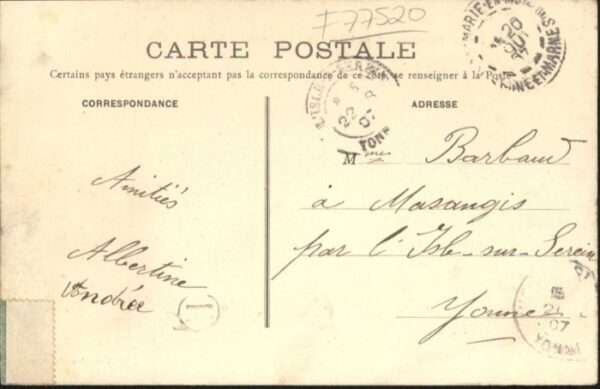 F77520
CARTE POSTALE
Certains pays étrangers n'acceptant pas la correspondance de ce côté, se renseigner à la Poste
CORRESPONDANCE
ADRESSE
Amitiés
Albertine
Andrée
1
Mmes Barbaud
à Massangis
par l'Isle-sur-Serein
Yonne